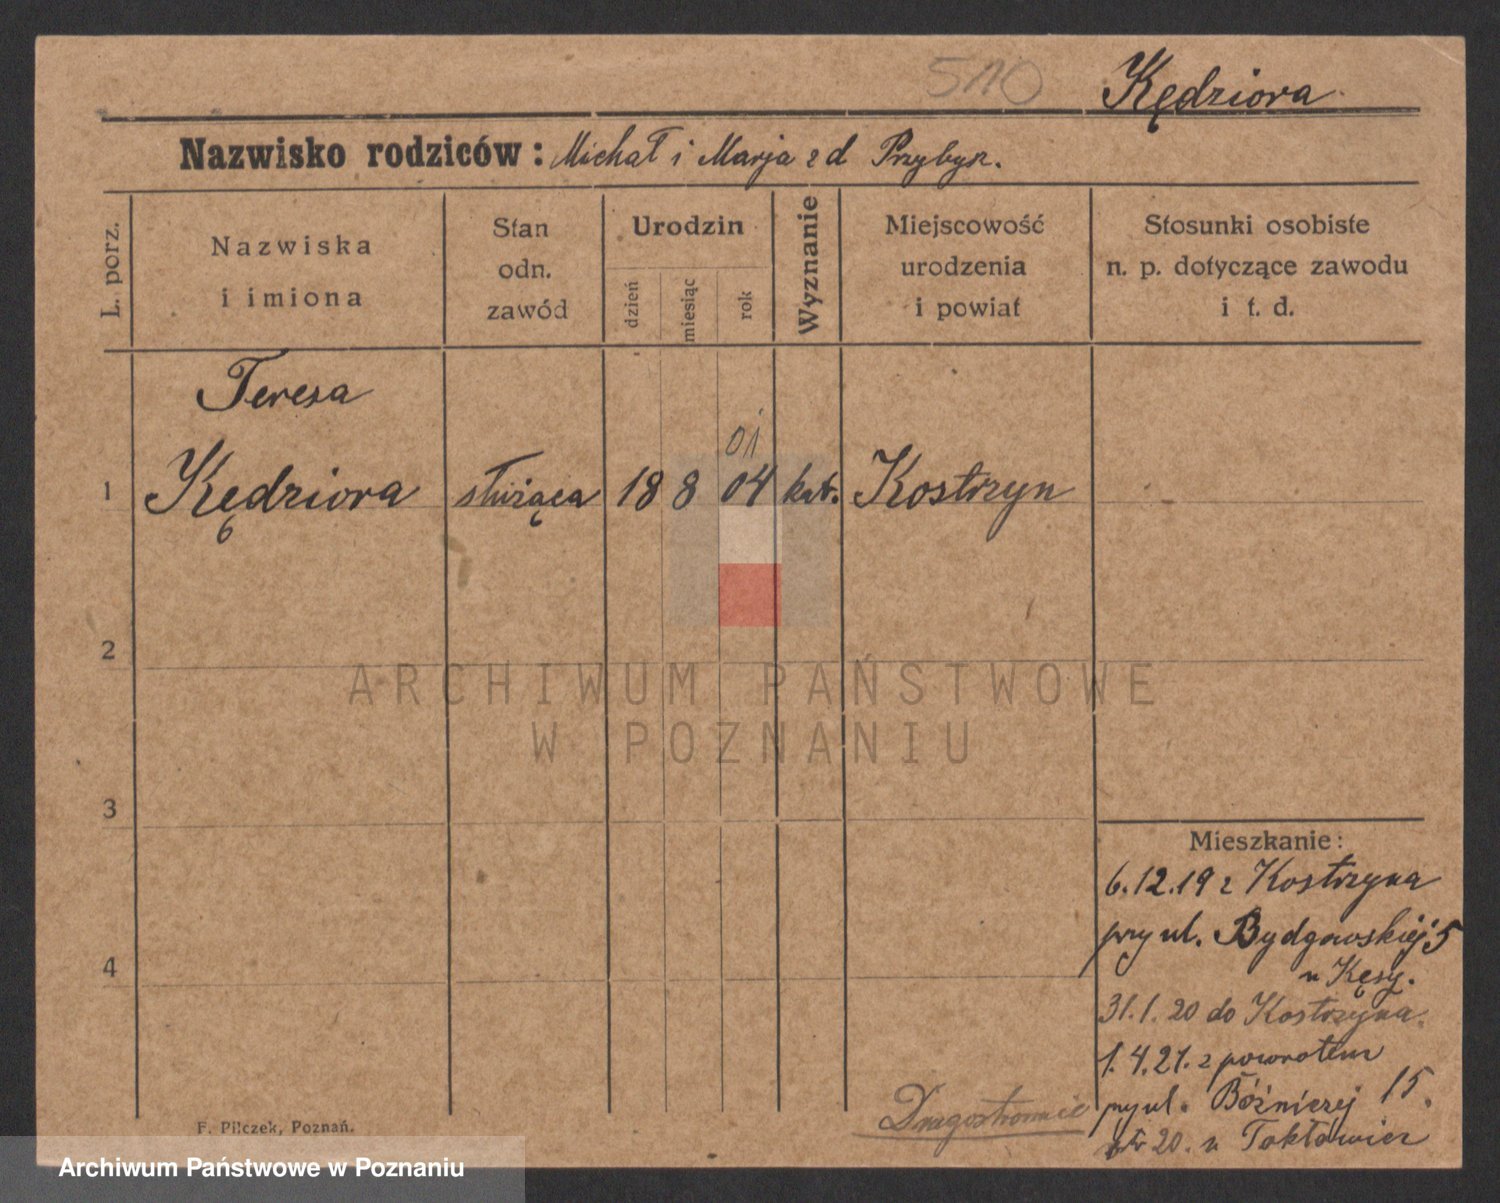 510
Kędziora
Nazwisko rodziców: Michał i Marja z d Przybysz.
L. porz.
Nazwiska
i imiona
Stan
odn.
zawód
Urodzin
dzień
miesiąc
rok
Wyznanie
Miejscowość
urodzenia
i powiat
Stosunki osobiste
n. p. dotyczące zawodu
i t. d.
Teresa
01
1 Kędziora służąca 18 8 04 kat. Kostrzyn
2
ARCHIWUM PAŃSTWOWE
W POZNANIU
3
Mieszkanie:
6.12.19 z Kostrzyna
przy ul. Bydgowskiej 5
u Kęsy.
4
31.1.20 do Kostrzyna.
1.4.21. z powrotem
przy ul. Bóźniczej 15.
20. u
F. Pilczek, Poznań.
Archiwum Państwowe w Poznaniu